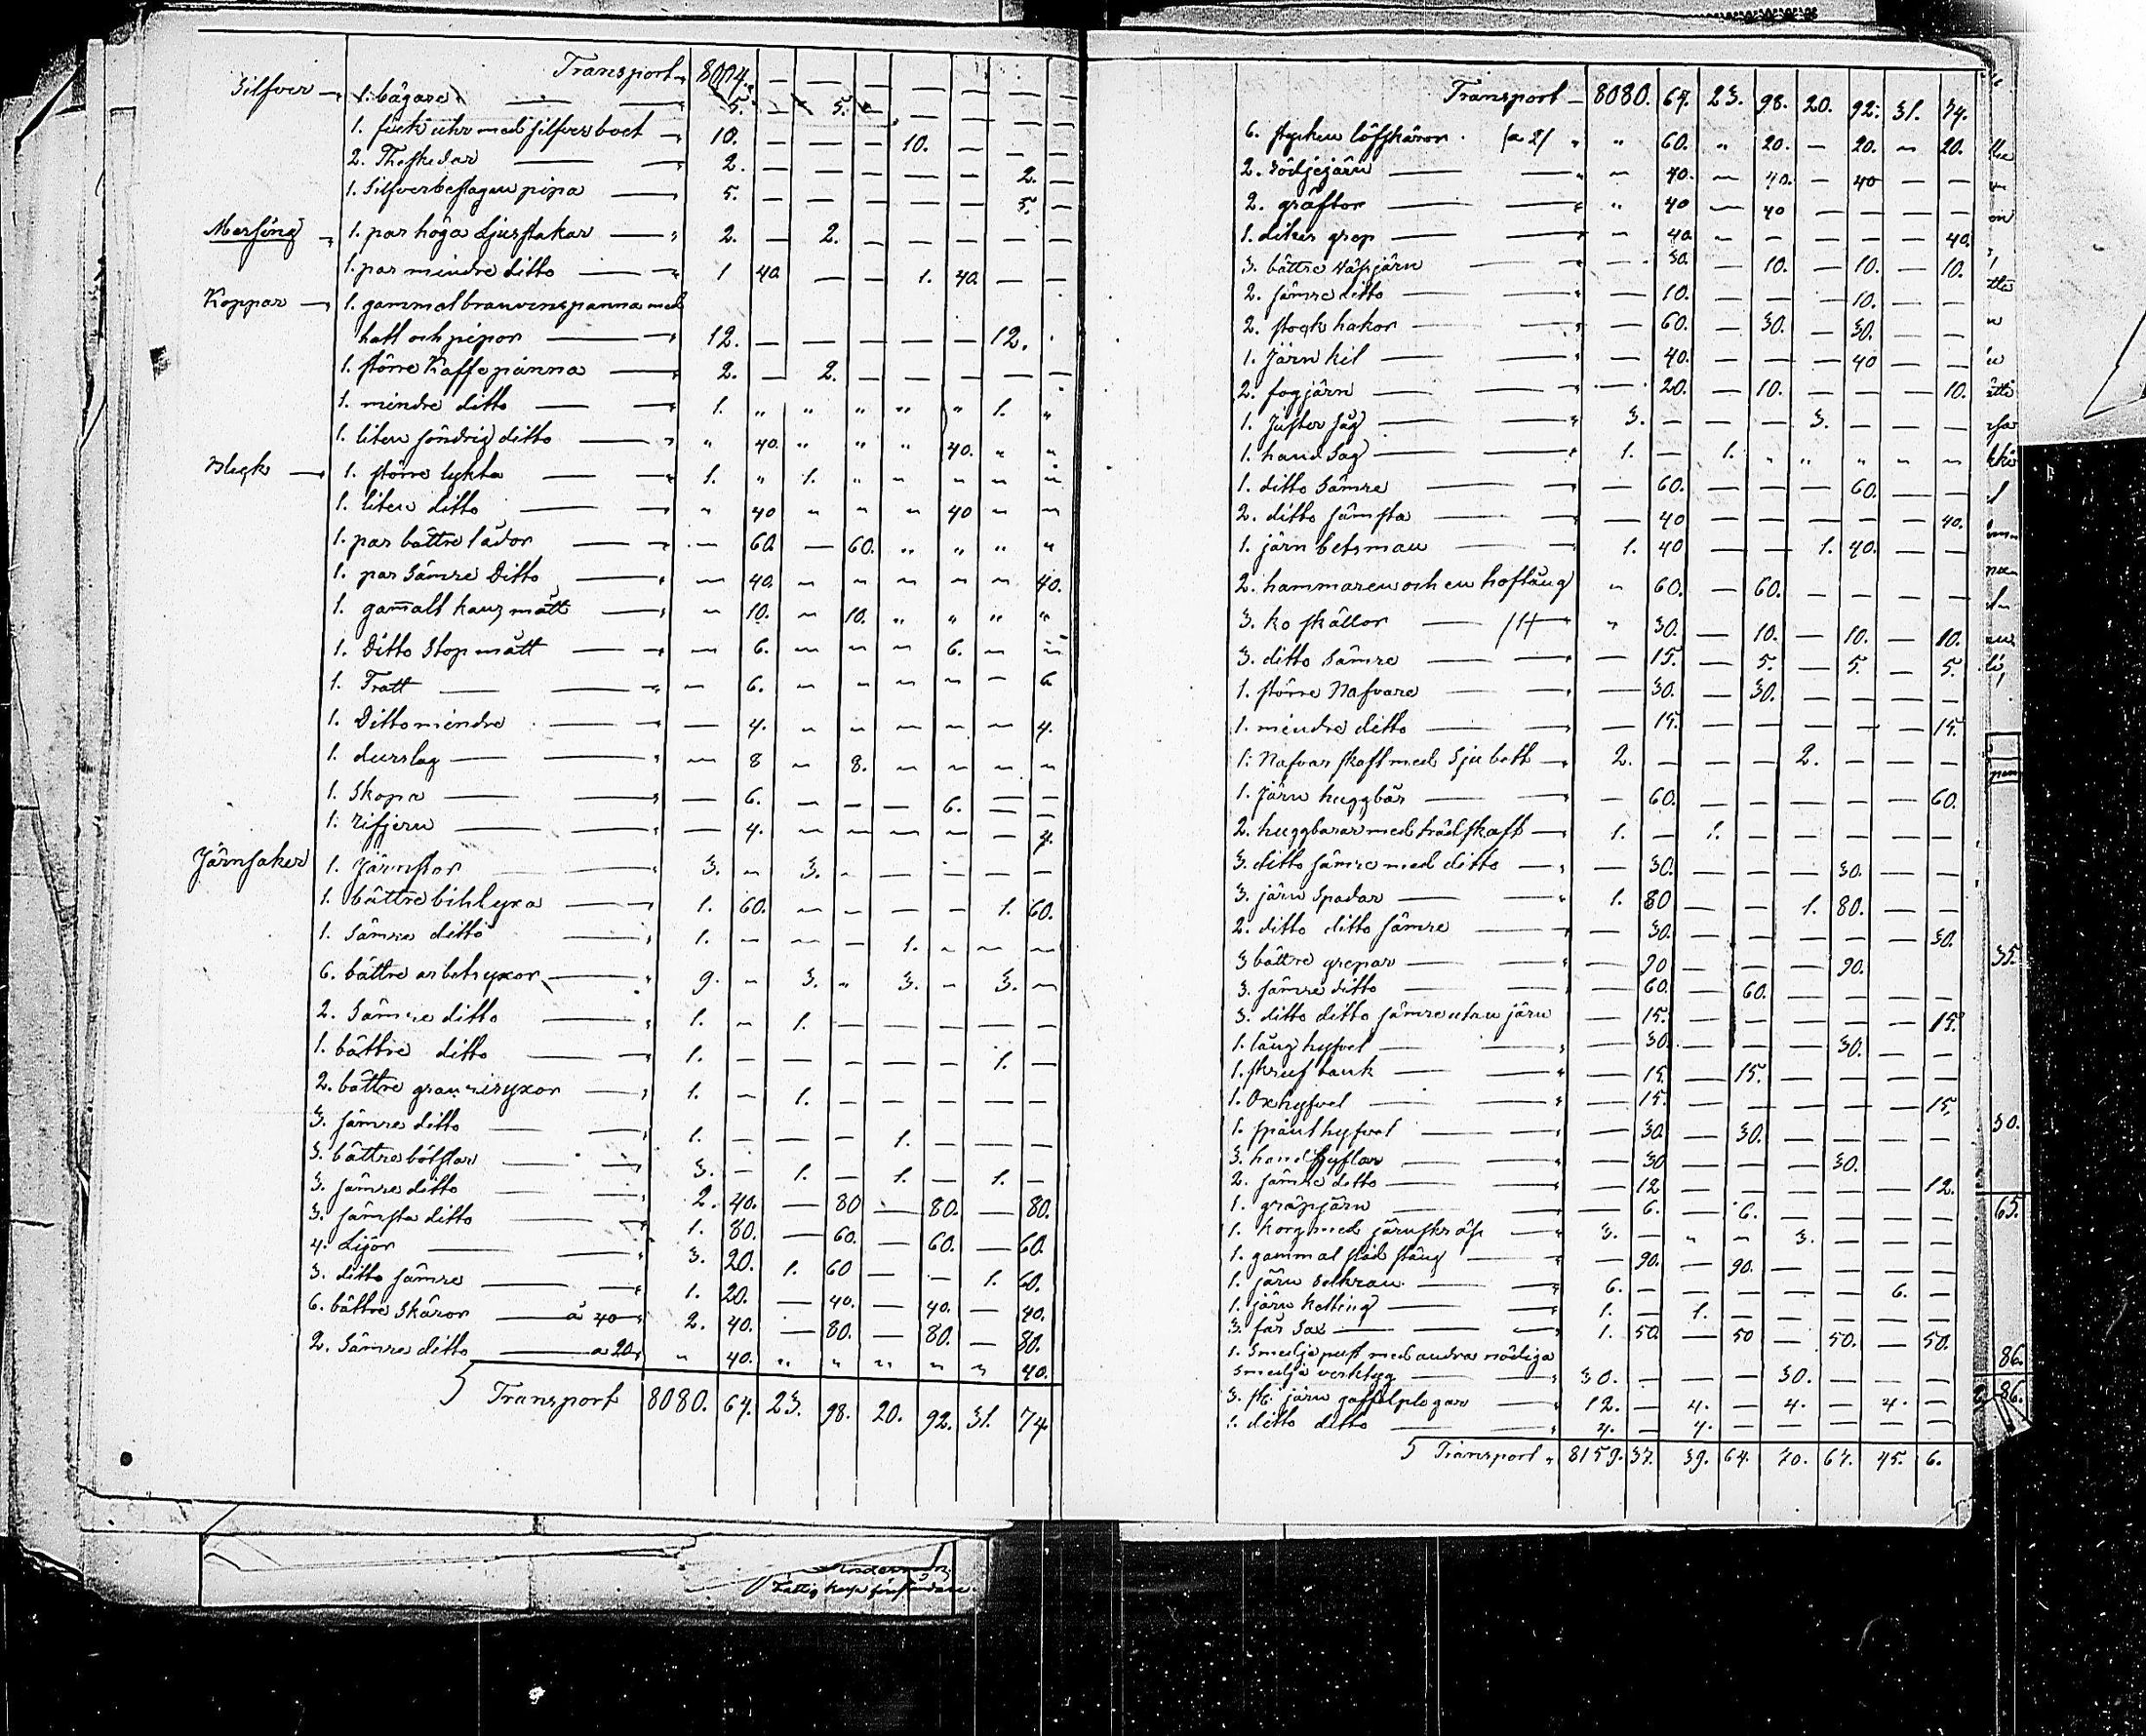 Transport 8074. — — — — — — —
Silfver 1. bägare 5. — 5. — — — —
1. fick uhr med silfver boet 10. — — — 10. — — —
2. Theskedar 2. — — — — — 2. —
1. Silfverbeslagen pipa 5. — — — — — 5. —
Messing 1. par höga Ljusstakar 2. — 2. — — — — —
1. par mindre ditto 1 40. — — 1. 40. — —
Koppar 1. gammal branvenspanna med
hatt och pipor 12. — — — — — 12.
1. större Kaffepanna 2. — 2. — — — — —
1. mindre ditto 1. " " " " " 1. "
1. liten söndrig ditto " 40. " " " 40. " "
Bleck 1. större lykta 1. " 1. " " " " "
1. liten ditto " 40 " " " 40 " "
1. par bättre lådor — 60. — 60. " " " "
1. par Sämre Ditto — 40. " " " " " 40.
1. gam̄alt kanz mått " 10. " 10. " " " "
1. Ditto Stop mått — 6. " " " 6. " "
1. Tratt — 6. " " " " " 6
1. Ditto mindre — 4. " " " " " 4.
1. durslag — 8 " 8. " " " "
1. Skopa — 6. — — — 6. — —
1. rifjern — 4. — — — — — 4.
Järnsaker 1. Järnstor 3. " 3. — — — — —
1. bättre bihlyxa 1. 60. — — — — 1. 60.
1. Sämre ditto 1. — — — 1. — — —
6. bättre arbetsyxor 9. " 3. " 3. " 3. —
2. Sämre ditto 1. " 1. — — — — —
1. bättre ditto 1. — — — — — 1. —
2. bättre granrisyxor 1. — 1. — — — — —
3. sämre ditto 1. — — — 1. — — —
3. bättre 3. — 1. — 1. — 1. —
3. sämre ditto 2. 40. — 80 — 80. — 80.
3. sämsta ditto 1. 80. — 60. — 60. — 60.
4. Lijor 3. 20. 1. 60 — — 1. 60.
3. ditto sämre 1. 20. — 40. — 40. — 40.
6. bättre Skäror á 40 2. 40. — 80. — 80. — 80.
2. Sämre ditto a 20 " 40. " " " " " 40.
Transport 8080. 64. 23. 98. 20. 92. 31. 74
Transport 8080. 64. 23. 98. 20. 92. 31. 74.
6. stycken löfskäror (a 2/ " 60. " 20. — 20. — 20.
2. — 40. — 40. — 40 — —
2. gräftor " 40 — 40 — — — —
1. dikes grep — 40 — — — — — 40.
3. bättre — 30. — 10. — 10. — 10.
2. sämre ditto — 10. — — — 10. — —
2. stock hakor — 60. — 30. — 30. — —
1. Järn kil — 40. — — — 40 — —
2. fogjärn — 20. — 10. — — — 10.
1. Juster såg 3. — — — 3. — — —
1. hand Sag 1. — 1. " " " " "
1. ditto Sämre — 60. — — — 60. — —
2. ditto sämsta — 40 — — — — — 40.
1. järn betsman 1. 40 — — 1. 40. — —
2. hammaren och en hoftång " 60. — 60. — — — —
3. ko skällor " 30. — 10. — 10. — 10.
3. ditto Sämre — 15. — 5. — 5. — 5.
1. större Nafvare — 30. — 30. — — — —
1. mindre ditto — 15. — — — — — 15.
1. Nafvar skaft med Sju bett 2. — — — 2. — — —
1. Järn huggbär — 60. — — — — — 60.
2. huggbarar med träd skaft 1. — 1. — — — — —
3. ditto sämre med ditto — 30. — — — 30. — —
3. järn Spadar 1. 80 — — 1. 80. — —
2. ditto ditto sämre — 30. — — — — — 30.
3 bättre grepar — 90 — — — 90.
3. sämre ditto — 60. — 60. — — — —
3. ditto ditto sämre utan järn — 15. — — — — — 15.
1. lång hyfvel — 30. — — — 30. — —
1. skruf bank — 15. — 15. — — — —
1. Oxhyfvel — 15. — — — — — 15.
1. spånt hyfvel — 30. — 30. — — — —
3. hand hyflar — 30 — — — 30.
2. sämre ditto — 12 — — — — — 12.
1. gräpjärn — 6. — 6. — — — —
1. Korg med järnskräp 3. — " " 3. — — —
1. gammal städ stång — 90. — 90. — — — —
1. järn 6. — — — — — 6. —
1. järn ketting 1. — 1. — — — — —
3. får Sax 1. 50. — 50 — 50. — 50.
1. Smedja pust med andra nödiga
Smedje verktyg 30. — — — 30. — — —
3. st. järn gaffelplogar 12. — 4. — 4. — 4. —
1. ditto ditto 4. — 4. — — — — —
Transport 8159. 37. 39. 64. 70. 67. 45. 6.
35.
30.
65.
86.
86.